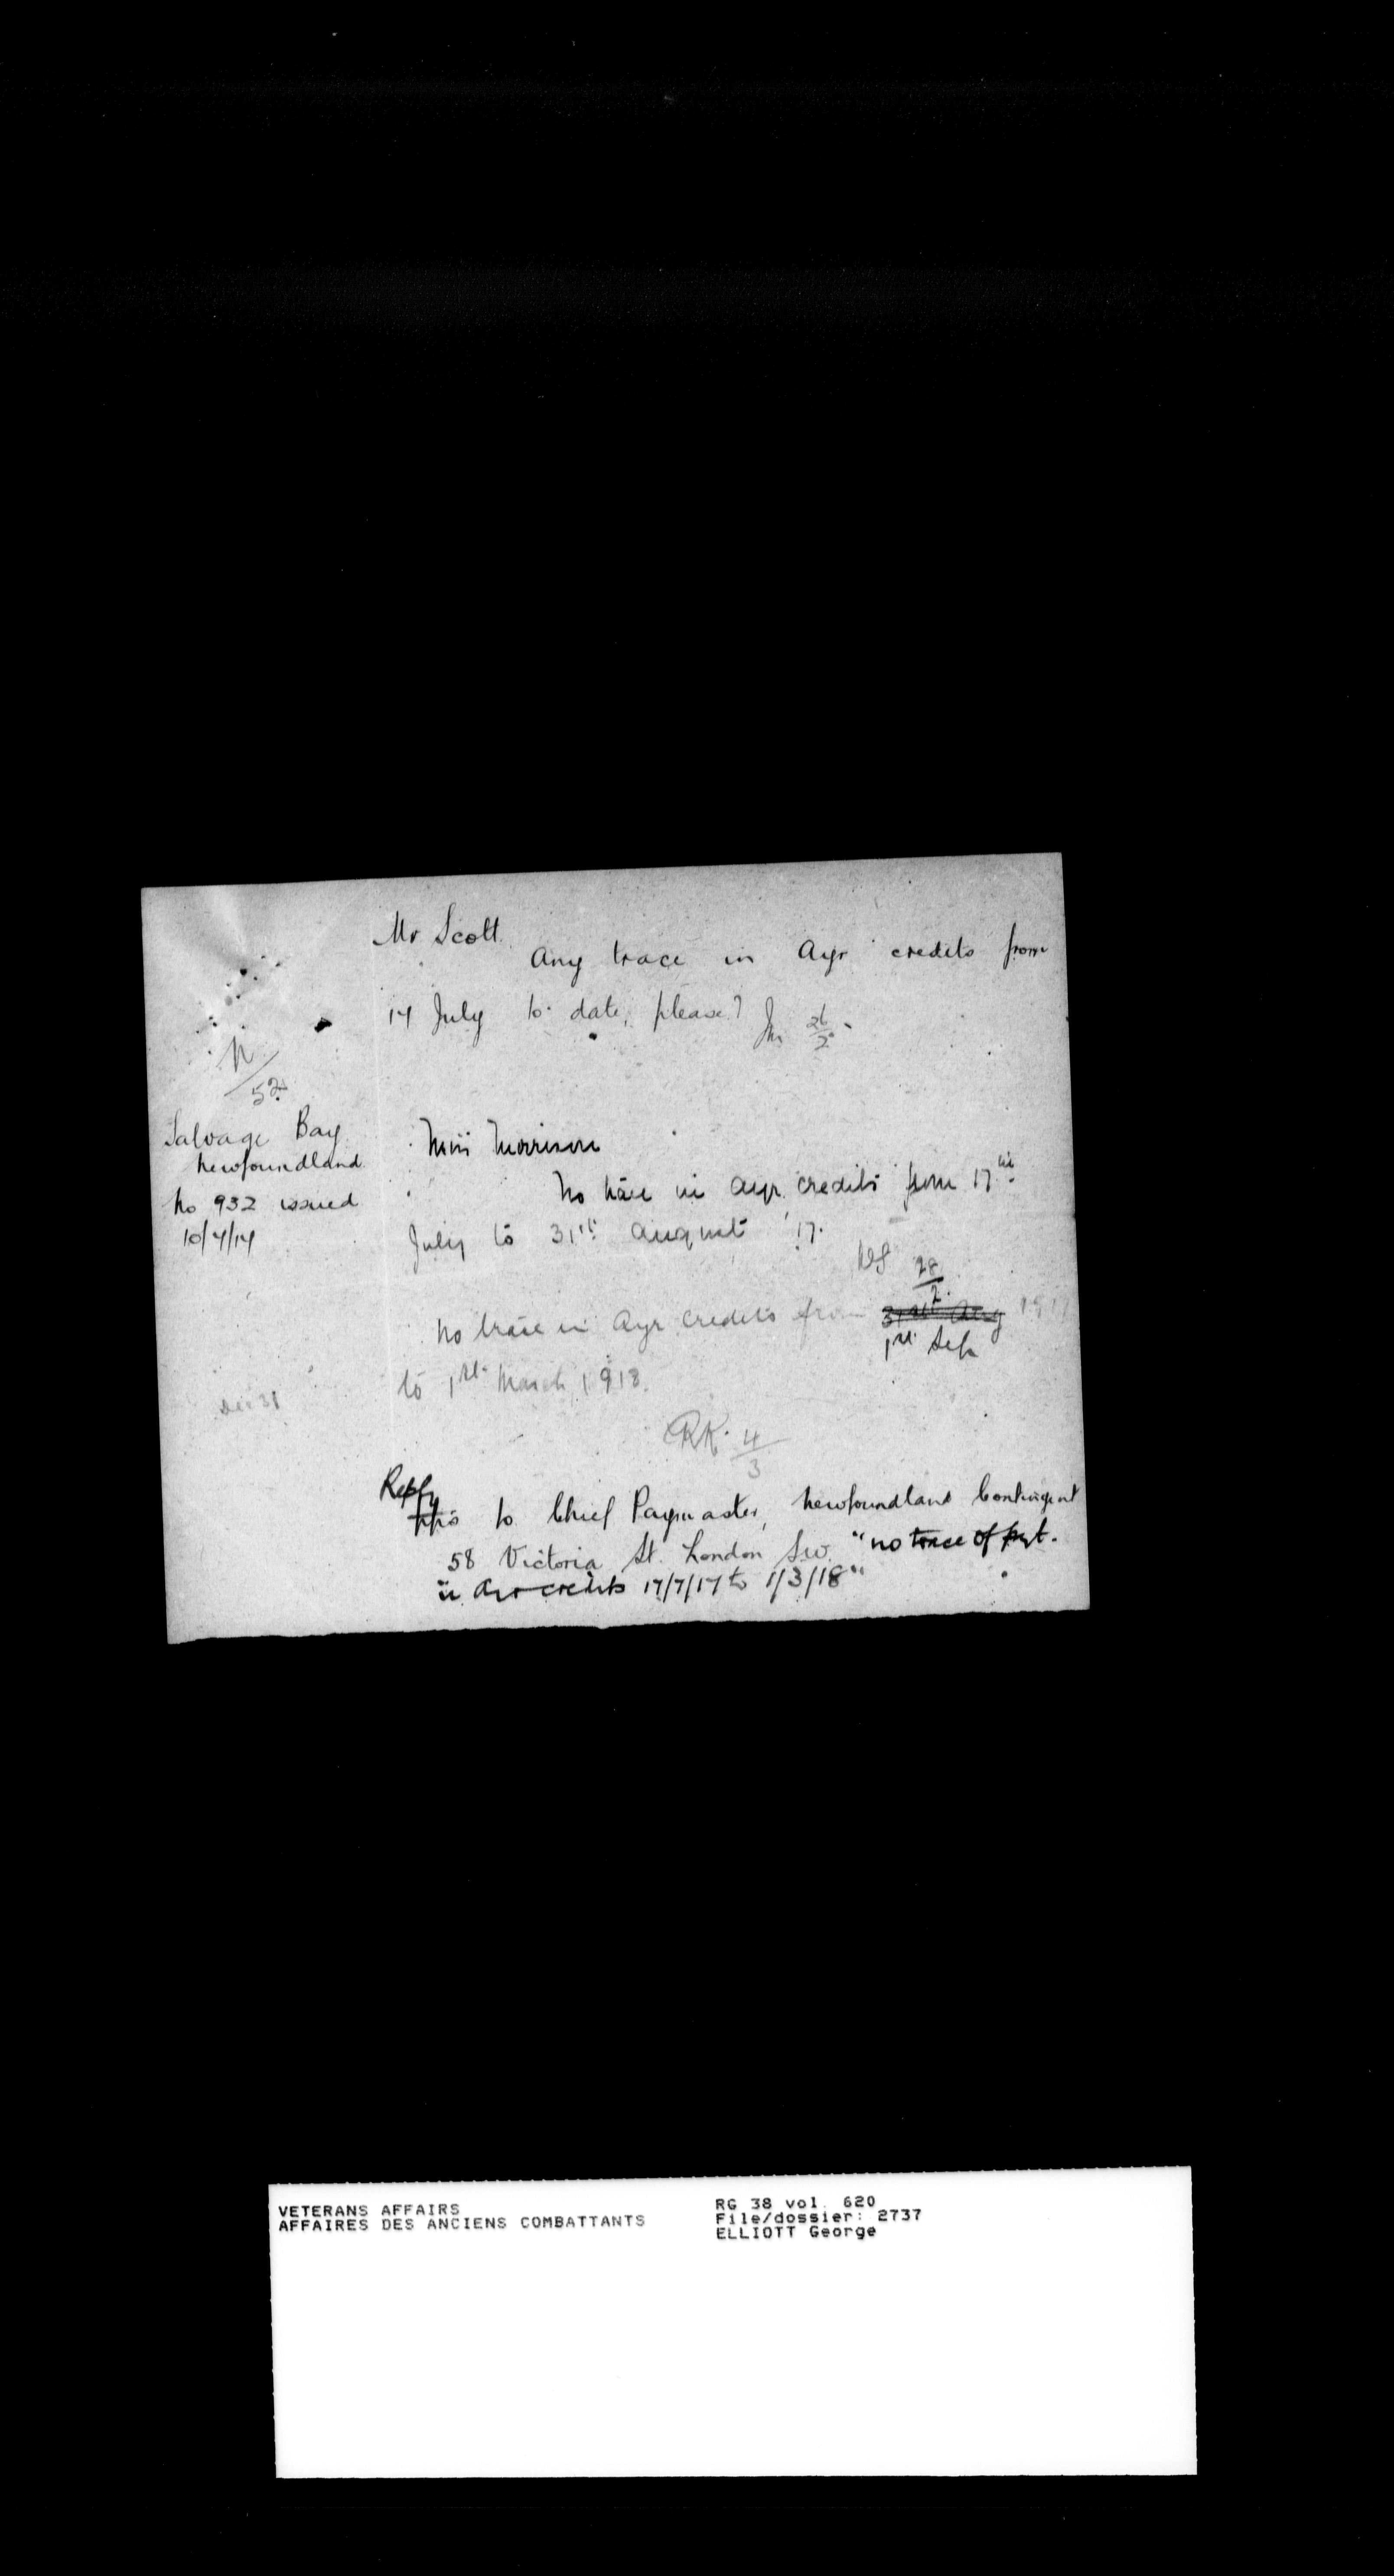 Mr Scott.
Any trace in Ayr credits from
17 July to date, please? Jm 26/2
N/52
Salvage Bay
Newfoundland
No 932 issued
10/7/17
Miss Morrison
No trace in Ayr credits from 17th
July to 31st August '17.
28/2
No trace in Ayr credits from ~~31st Aug~~ 1917
1st Sep
to 1st March 1918.
Dec 31
RK. 4/3
Reply
to Chief Paymaster, Newfoundland Contingent
58 Victoria St. London SW. "no trace of pyt.
in Ayr credits 17/7/17 to 1/3/18"
VETERANS AFFAIRS
AFFAIRES DES ANCIENS COMBATTANTS
RG 38 vol. 620
File/dossier: 2737
ELLIOTT George